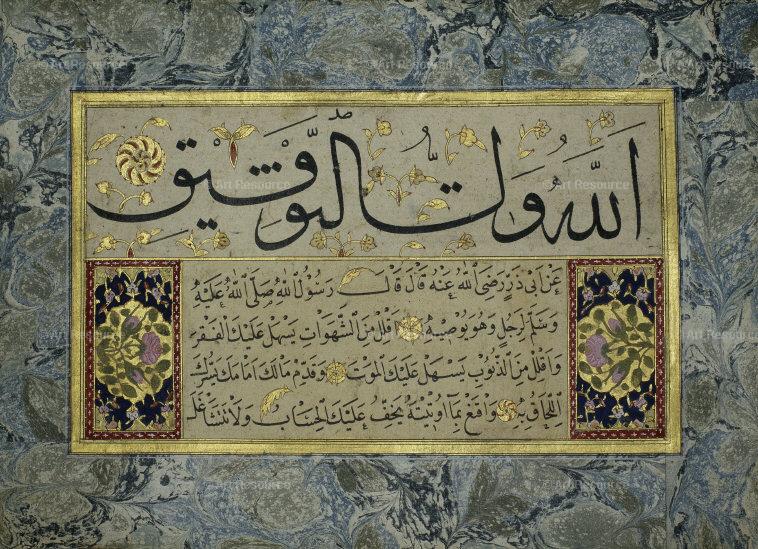 الله ولي التوفيق
عن ابي ذر رضي الله عنه قال قال رسول الله صلى الله عليه
وسلم لرجل وهو يوصيه اقلل من الشهوات يسهل عليك الفقر
واقلل من الذنوب يسهل عليك الموت وقدم مالك امامك يسرك
اللحاق به واقنع بما اوتيته يخف عليك الحساب ولا تتشاغل
© Art Resource